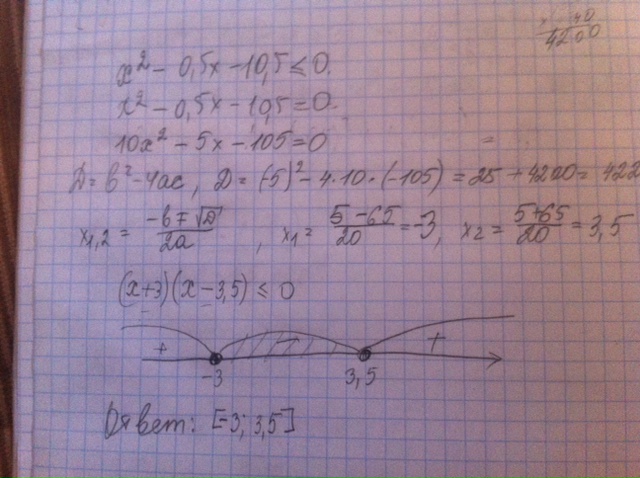 40
4200
x² - 0,5x - 10,5 ≤ 0.
x² - 0,5x - 10,5 = 0.
10x² - 5x - 105 = 0
D = b² - 4ac, D = (-5)² - 4·10·(-105) = 25 + 4200 = 422
x₁,₂ = (-b ∓ √D)/2a, x₁ = (5 - 65)/20 = -3, x₂ = (5+65)/20 = 3,5
(x+3)(x-3,5) ≤ 0
+ - +
-3 3,5
Ответ: [-3; 3,5]